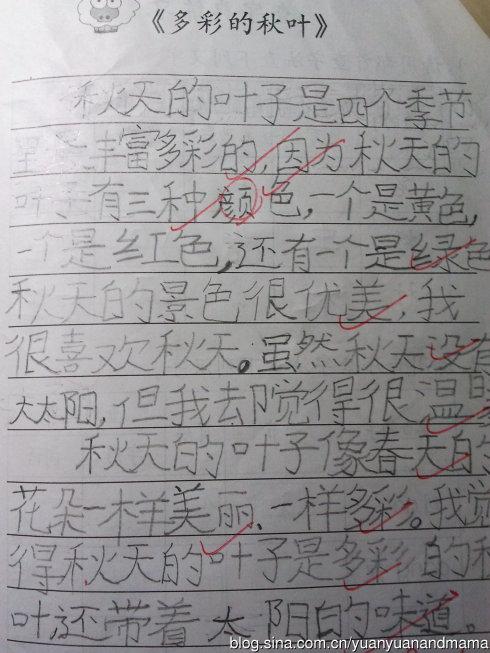 《多彩的秋叶》
秋天的叶子是四个季节
里最丰富多彩的,因为秋天的
叶子有三种颜色,一个是黄色,
一个是红色,还有一个是绿色
秋天的景色很优美,我
很喜欢秋天。虽然秋天没有
大太阳,但我却觉得很温暖
秋天的叶子像春天的
花朵一样美丽、一样多彩。我觉
得秋天的叶子是多彩的秋
叶,还带着太阳的味道。
blog.sina.com.cn/yuanyuanandmama